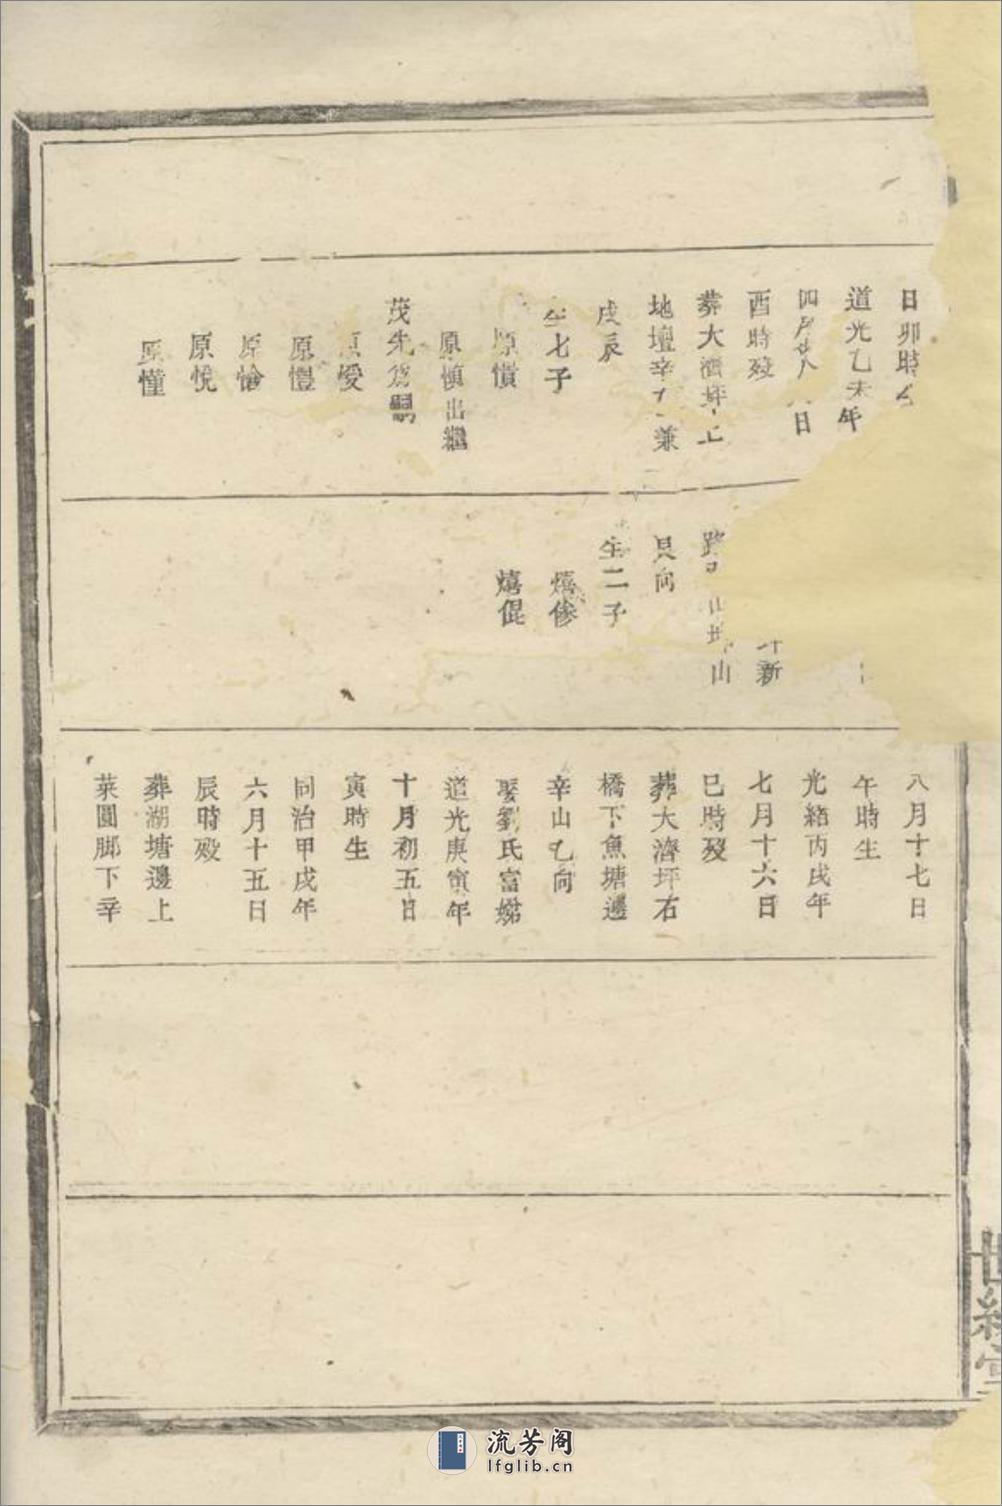 日卯時
道光乙未年
四月 日
酉時歿
葬大濟坪上
地壇辛 兼
戌辰
生七子
原慣
原慎出繼
茂先為嗣
原愛
原憻
原愉
原悅
原憧
新
山 山
艮向
生二子
熺修
熺倱
八月十七日
午時生
光緒丙戌年
七月十六日
巳時歿
葬大濟坪右
橋下魚塘邊
辛山乙向
娶劉氏富娣
道光庚寅年
十月初五日
寅時生
同治甲戌年
六月十五日
辰時歿
葬湖塘邊上
菜園脚下辛
世綵堂
流芳阁
lfglib.cn